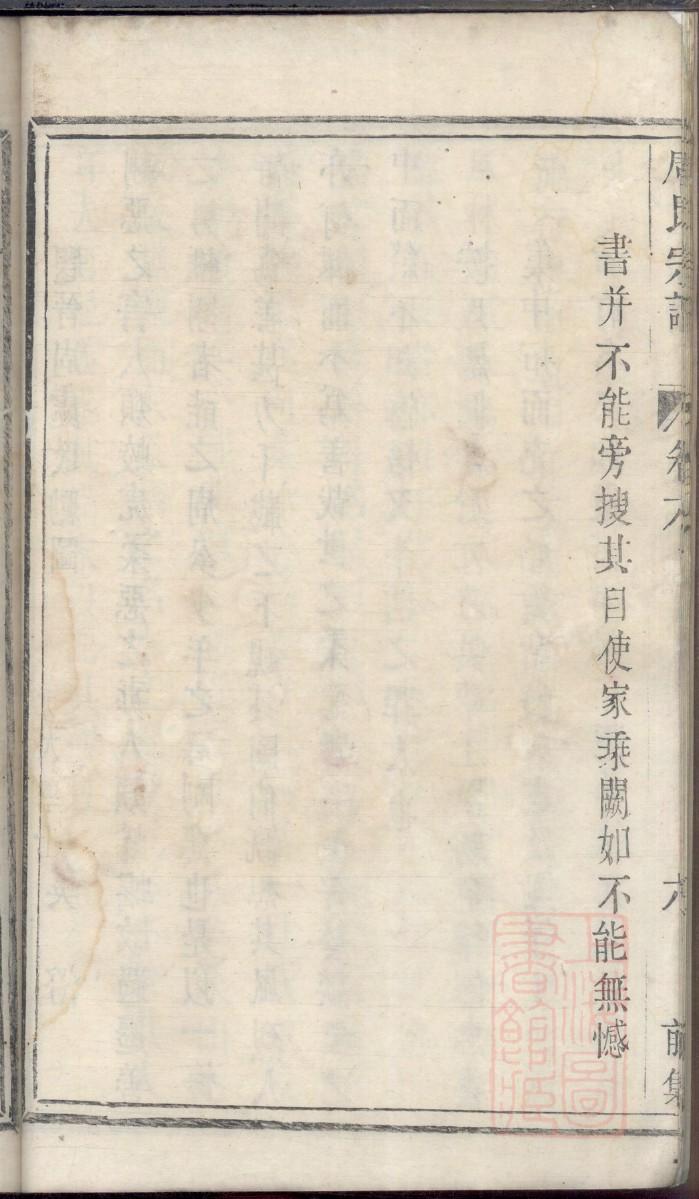 周氏宗譜
卷九
六
前集
書并不能旁搜其目使家乘闕如不能無憾
上海圖書館藏